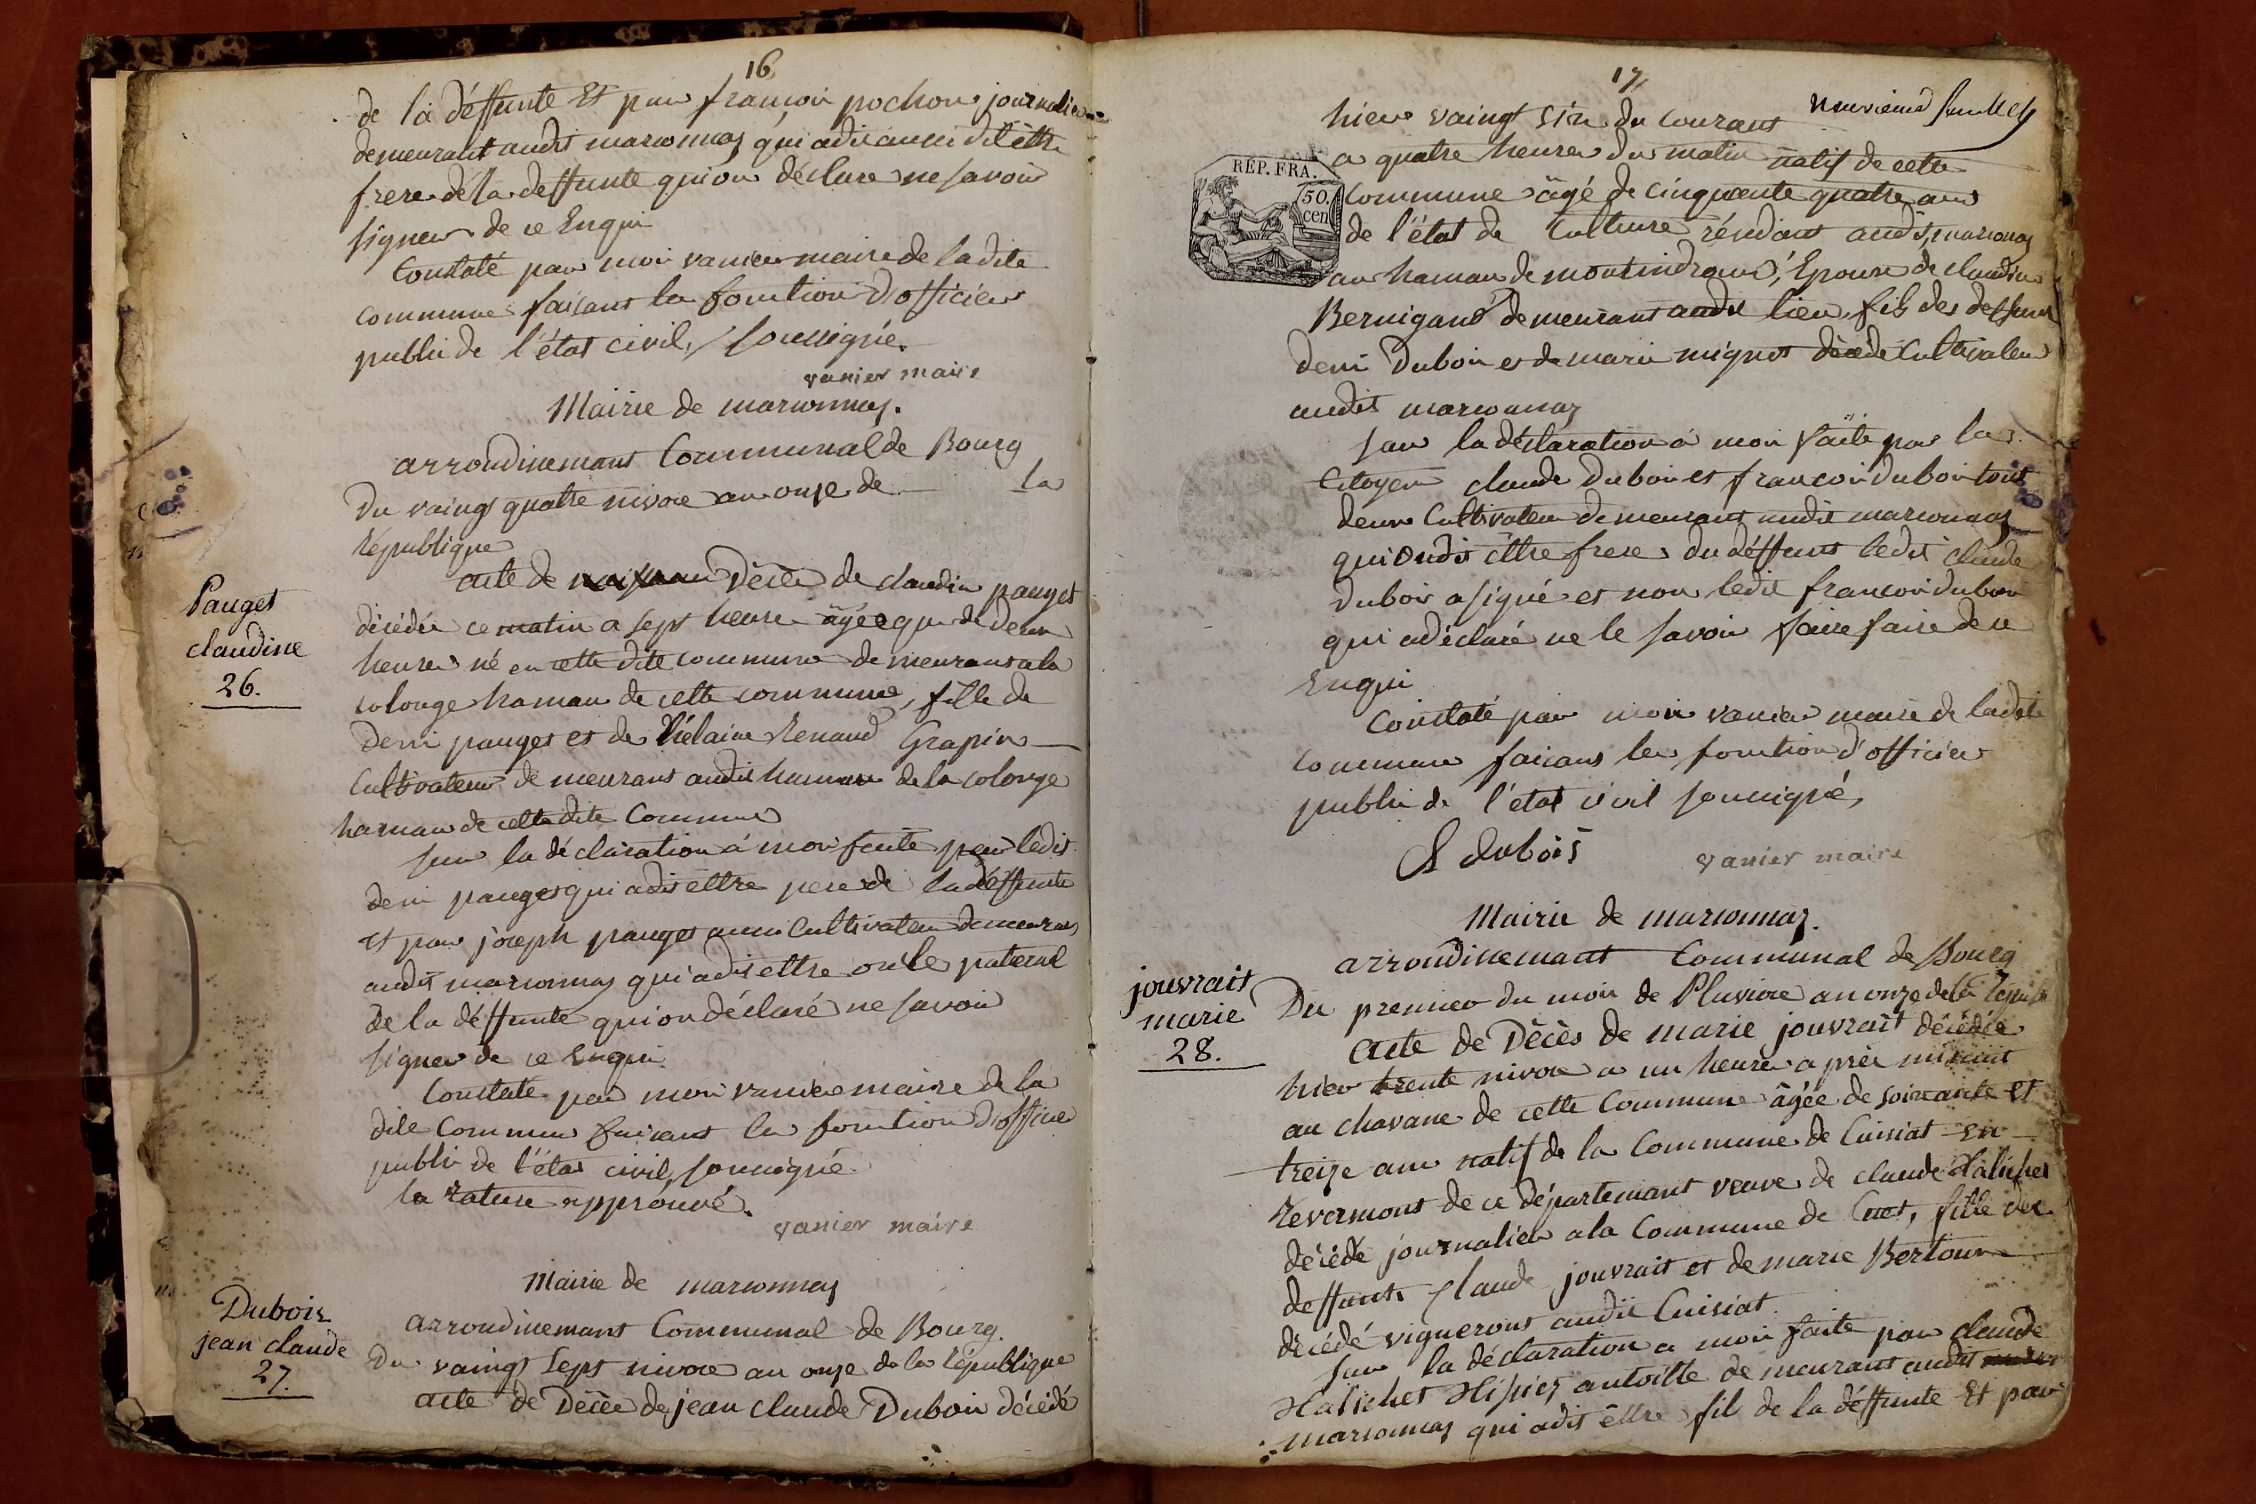 16
de la déffunte Et par françoir pochon journalier
demeurant audit marsonnas qui adit aussi dit éttre
frere de la deffunte qui on déclare ne savoir
signer de ce Enqui
Constaté par moi vanier maire de ladite
commune faisant la fonction d'officier
public de l'état civil, soussigné.
vanier maire
Mairie de marsonnas.
arrondinemant Communal de Bourg
Du vaingt quatre nivose an onze de la
république
acte de Décès de claudine pauget
décédée ce matin a sept heure âgée que de deux
heures né en cette dite commune demeurant a la
colonge hamau de cette commune, fille de
deni pauget et de Hélaine Renaud Grapin
Cultivateur demeurant audit hamau de la colonge
hamau de cette dite Commune
sur la déclaration à moi faite par ledit
deni pauget qui adit éttre pere de la déffunte
et par joseph pauget aussi Cultivateur demeurant
audit marsonnas qui adit ettre oncle paternel
de la déffunte qui on déclaré ne savoir
signer de ce Enqui
Constaté par moi vanier maire de la
dite Commune faisant la fonction d'officier
public de l'état civil, soussigné
la rature approuvé.
vanier maire
Mairie de marsonnas
arrondinemant Communal de Bourg.
Du vaingt sept nivose an onze de la république
acte de Décès de jean claude Duboir décédé
Pauget
claudine
26.
Duboir
jean claude
27.
17
neuvieme feuillet
hier vaingt six du courant
a quatre heures du matin natif de cette
REP. FRA.
50.
cen
commune âgé de cinquante quatre ans
de l'état de Culture résidant audit marsonnas
au hamau de montindroux, Epoux de claudine
Bernigand demeurant audit lieu, fils des deffunt
deni Duboir et de marie mignot décédé Cultivateur
audit marsonnas
sur la déclaration à moi faite par les
Citoyens claude Duboir et françoir Duboir tout
deux Cultivateur demeurant audit marsonnas
qui ondit éttre freres du déffunt ledit claude
Duboir a signé et non ledit françoir duboir
qui a déclaré ne le savoir faire faire de ce
Enqui
Constaté par moi vanier maire de ladite
commune faisant les fonction d'officier
public de l'état civil soussigné,
Cl dubois
vanier maire
Mairie de marsonnas.
arrondinemant Communal de Bourg
jouvrait
marie
28.
Du premier du mois de Pluviose an onze de la
acte de Décès de marie jouvrait décédée
hier trente nivose a un heure a près minuit
au chavane de cette Commune âgée de soixante et
treize ans natif de la Commune de Cuisiat en
revermont de ce département veuve de claude
décédé journalier a la Commune de Cuet, fille des
deffunts claude jouvrait et de marie Bertoux
décédé vignerons audit Cuisiat.
sur la déclaration a moi faite par claude
demeurant audit
marsonnas qui adit éttre fil de la déffunte Et par